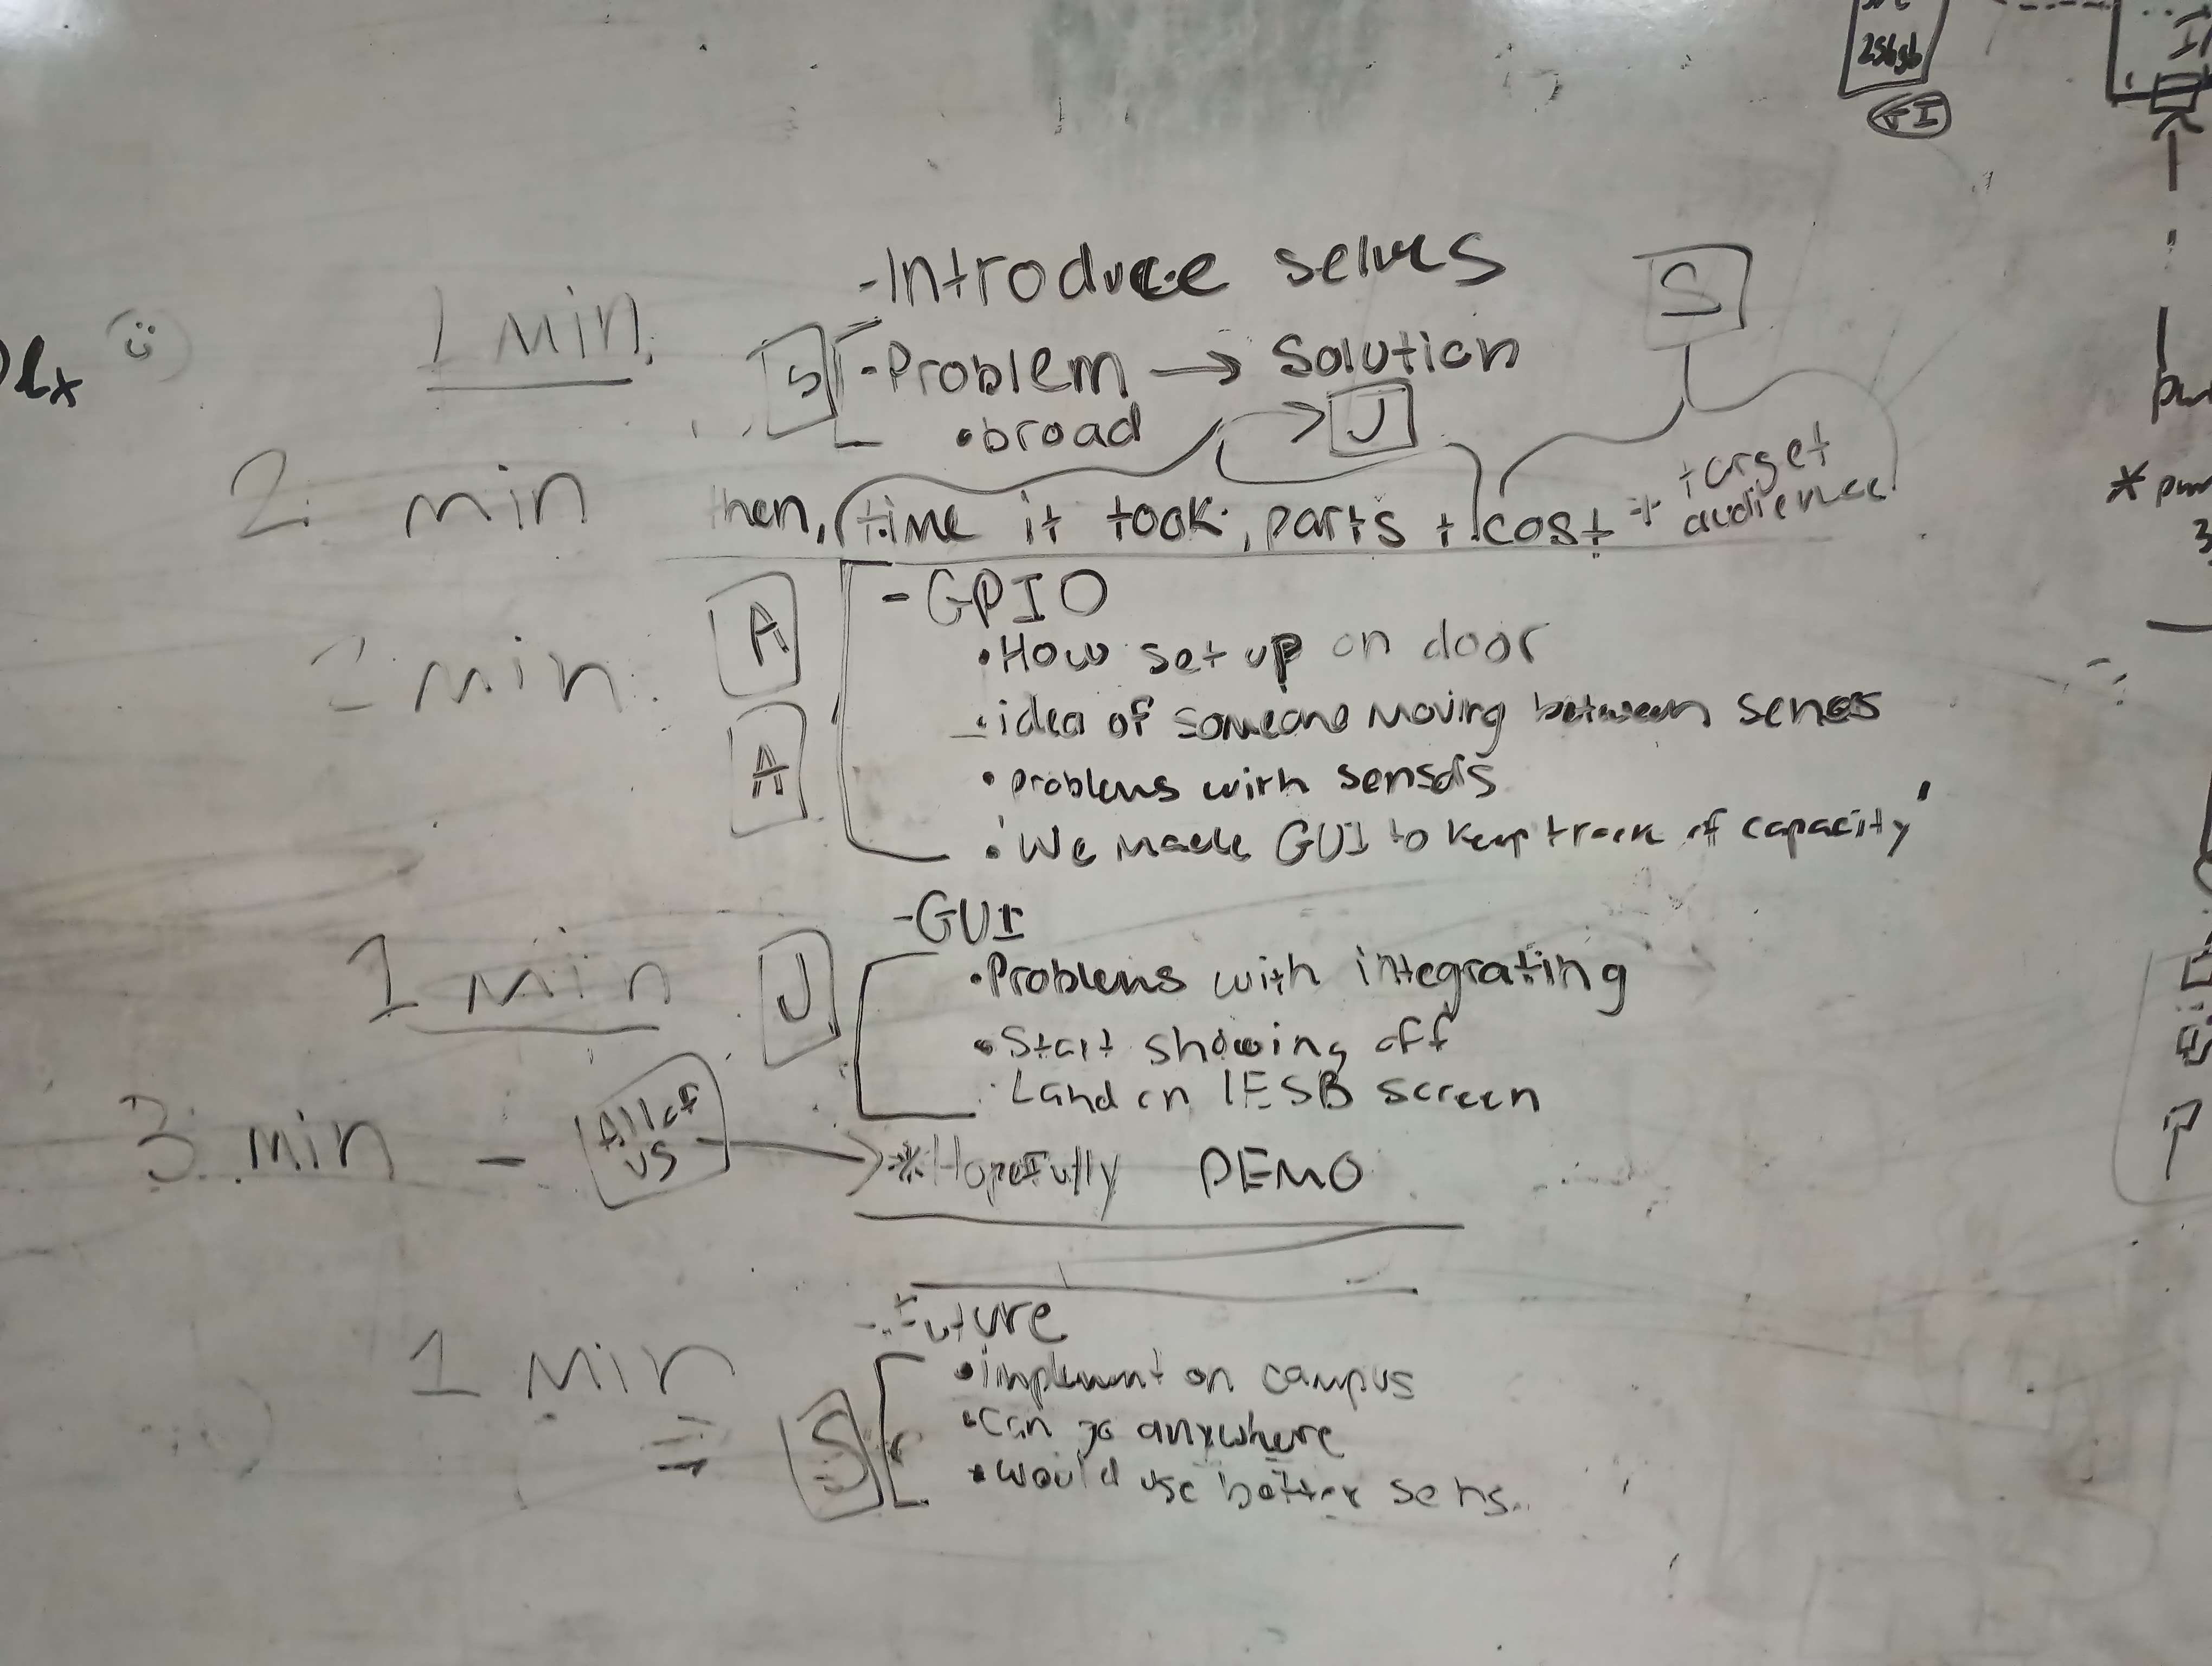 256gb
-Introduce selves
S
1 min.
S
-Problem → Solution
•broad
J
2 min
then, time it took, parts + cost + target audience
-GPIO
A
•How set up on door
min.
•idea of someone moving between senes
A
•problems with sensors
•We made GUI to keep track of capacity
-GUI
1 min
J
•Problems with integrating
•Start showing off
•Land on IESB screen
3 min - All of us → *Hopefully DEMO
-Future
1 min
•implement on campus
S
•Can go anywhere
•would use better sens.